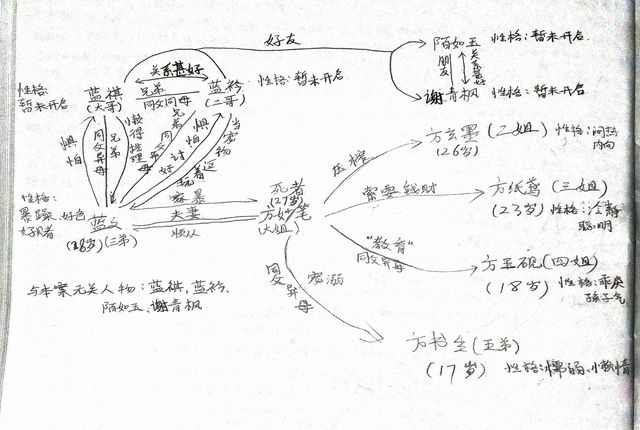 好友
陌如玉 性格：暂未开启
朋友
关系甚好
谢青枫 性格：暂未开启
性格：
暂未开启
蓝祺
(大哥)
关系甚好
兄弟
同父同母
蓝衿
(二哥)
性格：暂未开启
惧怕
同父异母
兄弟
懒得搭理
同父异母
兄弟
讨好
惧怕
当宠物
逗着玩
性格：
暴躁、好色
好赌者
蓝
(28岁)(三弟)
家暴
夫妻
顺从
死者
(27岁)
方妙笔
(大姐)
压榨
方玄墨(二姐) 性格：闷热
(26岁) 内向
索要钱财
方纸鸢(三姐)
(23岁) 性格：冷静
聪明
"教育"
同父异母
方玉砚(四姐)
(18岁) 性格：乖戾
孩子气
同父异母
宠溺
方书生(五弟)
(17岁) 性格：懦弱、小
与本案无关人物：蓝祺，蓝衿、
陌如玉、谢青枫